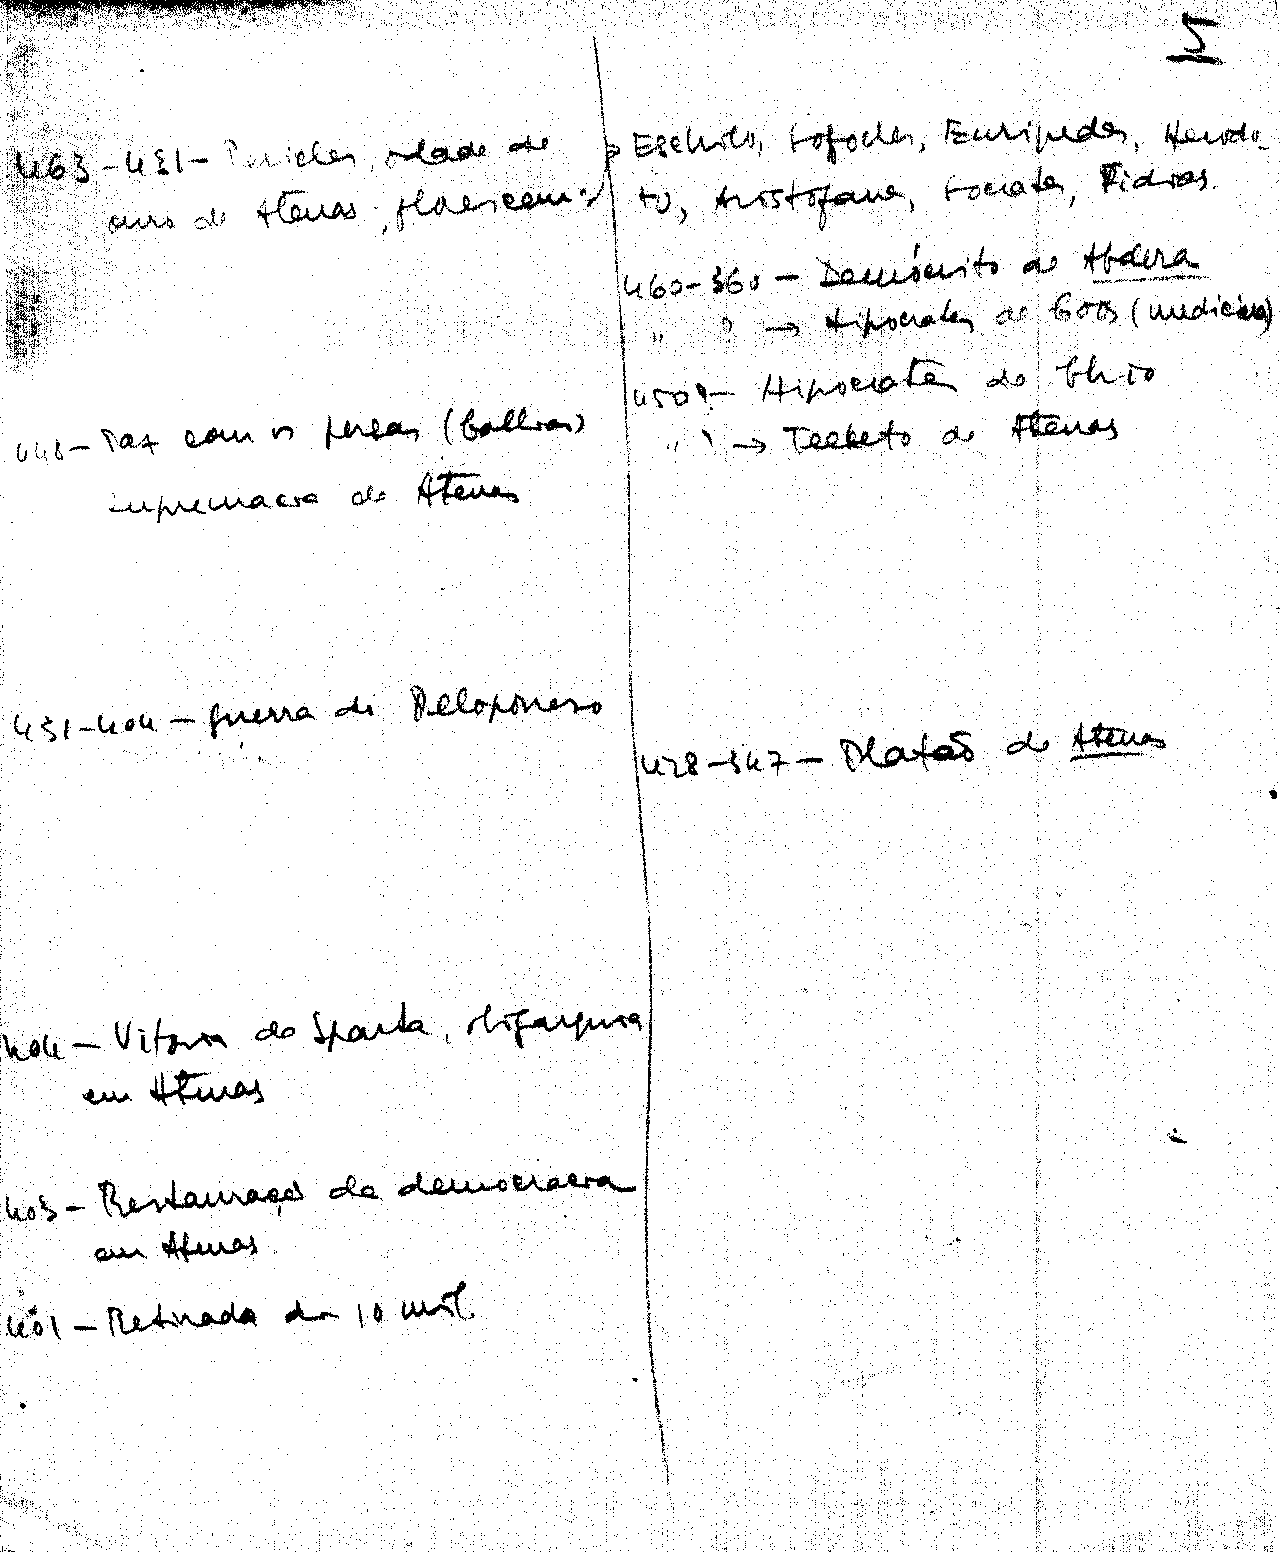 5
463-431- Pericles, idade de
ouro de Atenas, floresceram:
Eschilo, Sofocles, Euripedes, Herodo-
to, Aristofanes, Socrates, Fidias.
460-360 - Demócrito de Abdera
" " → Hipocrates de Coos (medicina)
450? - Hipocrates de Chio
" " → Teeteto de Atenas
448- Paz com os persas (Callias)
supremacia de Atenas
431-404 - guerra do Peloponeso
428-347 - Platão de Atenas
404 - Vitoria de Sparta, oligarquia
em Atenas
403 - Restauração da democracia
em Atenas
401 - Retirada dos 10 mil